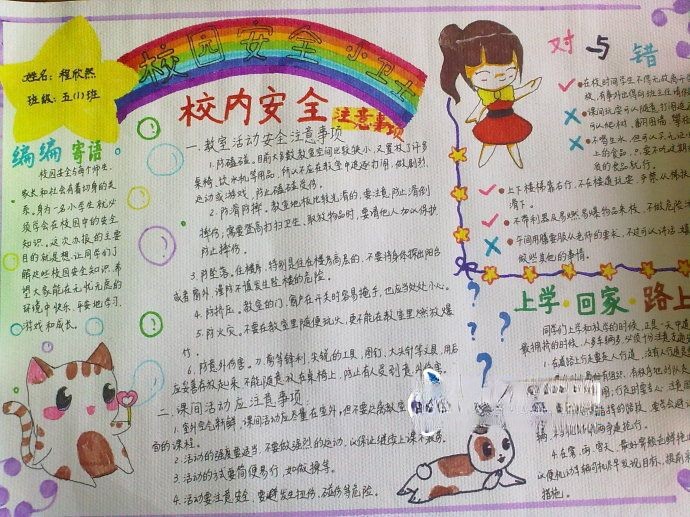 姓名：程欣然
班级：五(1)班
校园安全小卫士
编编寄语
校园安全与每个师生、
家长和社会有着切身的关
系。身为一名小学生就必
须学会在校园中的安全
知识。这次办报的主要
目的就是想让同学们了
解这些校园安全知识.希
望大家能在无忧无虑的
环境中快乐、平安地学习、
游戏和成长。
校内安全
注意事项
一.教室活动安全注意事项
1.防磕碰。目前大多数教室空间比较狭小，又置放了许多
桌椅、饮水机等用品，所以不应在教室中追逐打闹，做剧烈
运动或游戏，防止磕碰受伤。
2.防滑、防摔。教室地板比较光滑的，要注意防止滑倒
摔伤，需要登高打扫卫生、取放物品时，要请他人加以保护
防止摔伤。
3.防坠落。住楼房，特别是住在楼房高层的，不要将身体探出阳台
或者窗外，谨防不慎发生坠楼的危险。
4.防挤压。教室的门、窗户在开关时容易挤手，也应当处处小心。
5.防火灾。不要在教室里随便玩火，更不能在教室里燃放爆
竹。
6.防意外伤害。刀、剪等锋利、尖锐的工具，图钉、大头针等文具，用后
应妥善存放起来，不能随意放在桌椅上，防止有人受到意外伤害。
二.课间活动应注意事项
1.室外空气新鲜，课间活动应尽量在室外，但不要远离教室
面的课程。
2.活动的强度要适当，不要做剧烈的运动，以保证继续上课不疲劳
3.活动的方式要简便易行，如做操等。
4.活动要注意安全，要避免发生扭伤、碰伤等危险。
对与错
在校时间学生不得无故离
课间玩耍可以随意打闹追
可以爬树、翻围墙、攀
不喝生水，
的食品就行。
上下楼梯靠右行，不在楼道玩耍，手紧从楼扶
滑下。
不带利器及易燃易爆物品来校，不做危险
午间用膳要服从老师的要求，不过可以讲话
做些其他的事情。
上学·回家·路上
同学们上学和放学的时候，正是一天中道
最拥挤的时候，人多车辆多，必须十分注意交通
1.在道路上行走要走人行道，没有人行道
4.在雾、雨、雪天，最好穿颜色鲜艳
以便机动车辆司机尽早发现目标，提前
措施。